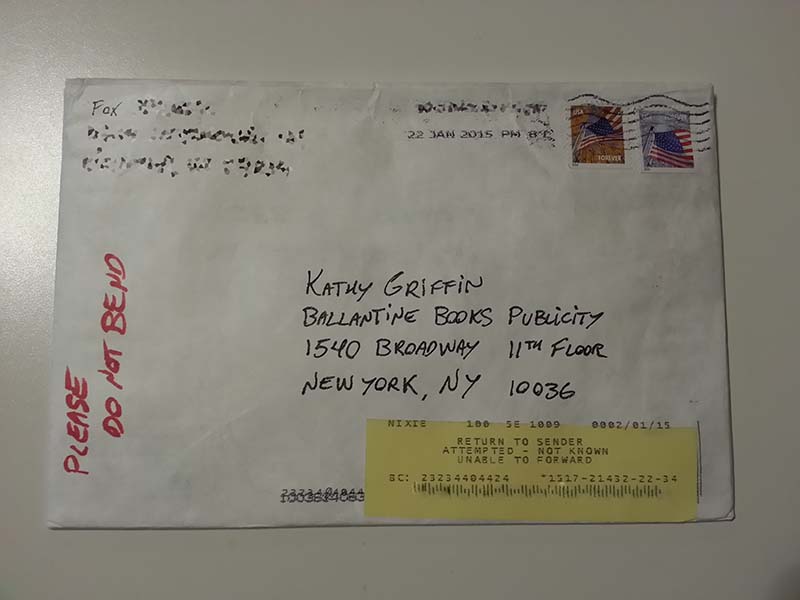 Fox
22 JAN 2015 PM
USA
FOREVER
PLEASE
DO NOT BEND
KATHY GRIFFIN
BALLANTINE BOOKS PUBLICITY
1540 BROADWAY 11TH FLOOR
NEW YORK, NY 10036
NIXIE 100 5E 1009 0002/01/15
RETURN TO SENDER
ATTEMPTED - NOT KNOWN
UNABLE TO FORWARD
BC: 23234404424 *1517-21432-22-34